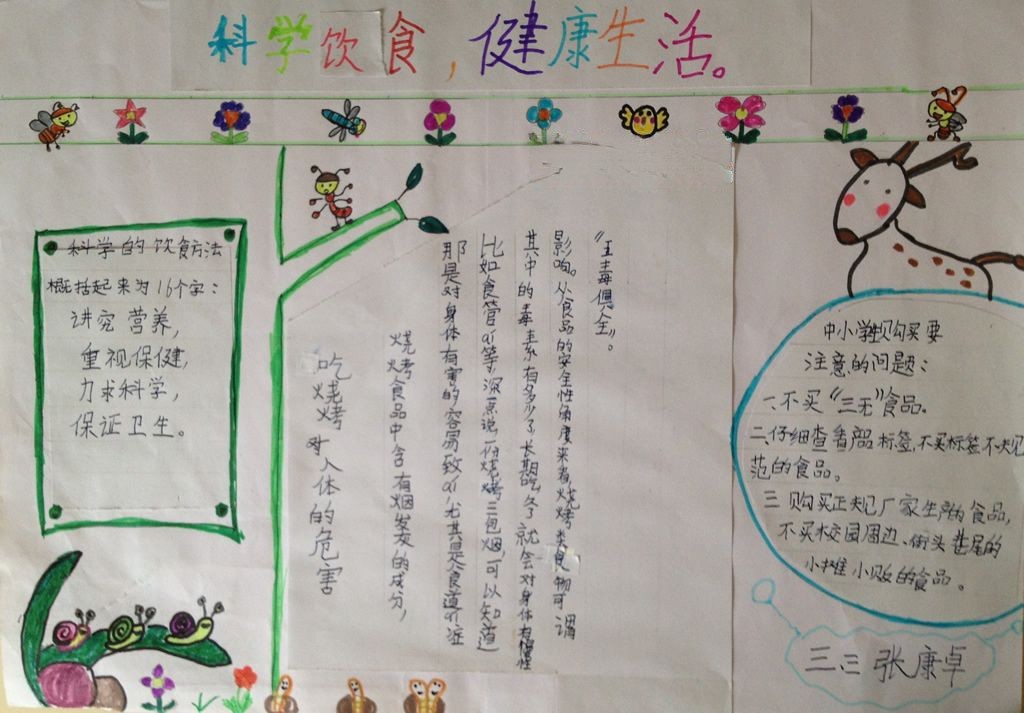 科学饮食，健康生活。
科学的饮食方法
概括起来为16个字：
讲究营养，
重视保健，
力求科学，
保证卫生。
吃烧烤对人体的危害
烧烤食品中含有烟发的成分，
那是对身体有害的容易致ai尤其是食道
比如食管ai等深点说一份烧烤三包烟，可以知道
其中的毒素有多少了长期吃多了就会对身体有慢性
影响。从食品的安全性角度来看烧烤类食物可谓
“五毒俱全”。
中小学生购买要
注意的问题：
一、不买“三无”食品。
二、仔细查看商品标签，不买标签不规
范的食品。
三 购买正规厂家生产的食品，
不买校园周边、街头巷尾的
小摊小贩的食品。
三.三 张康卓